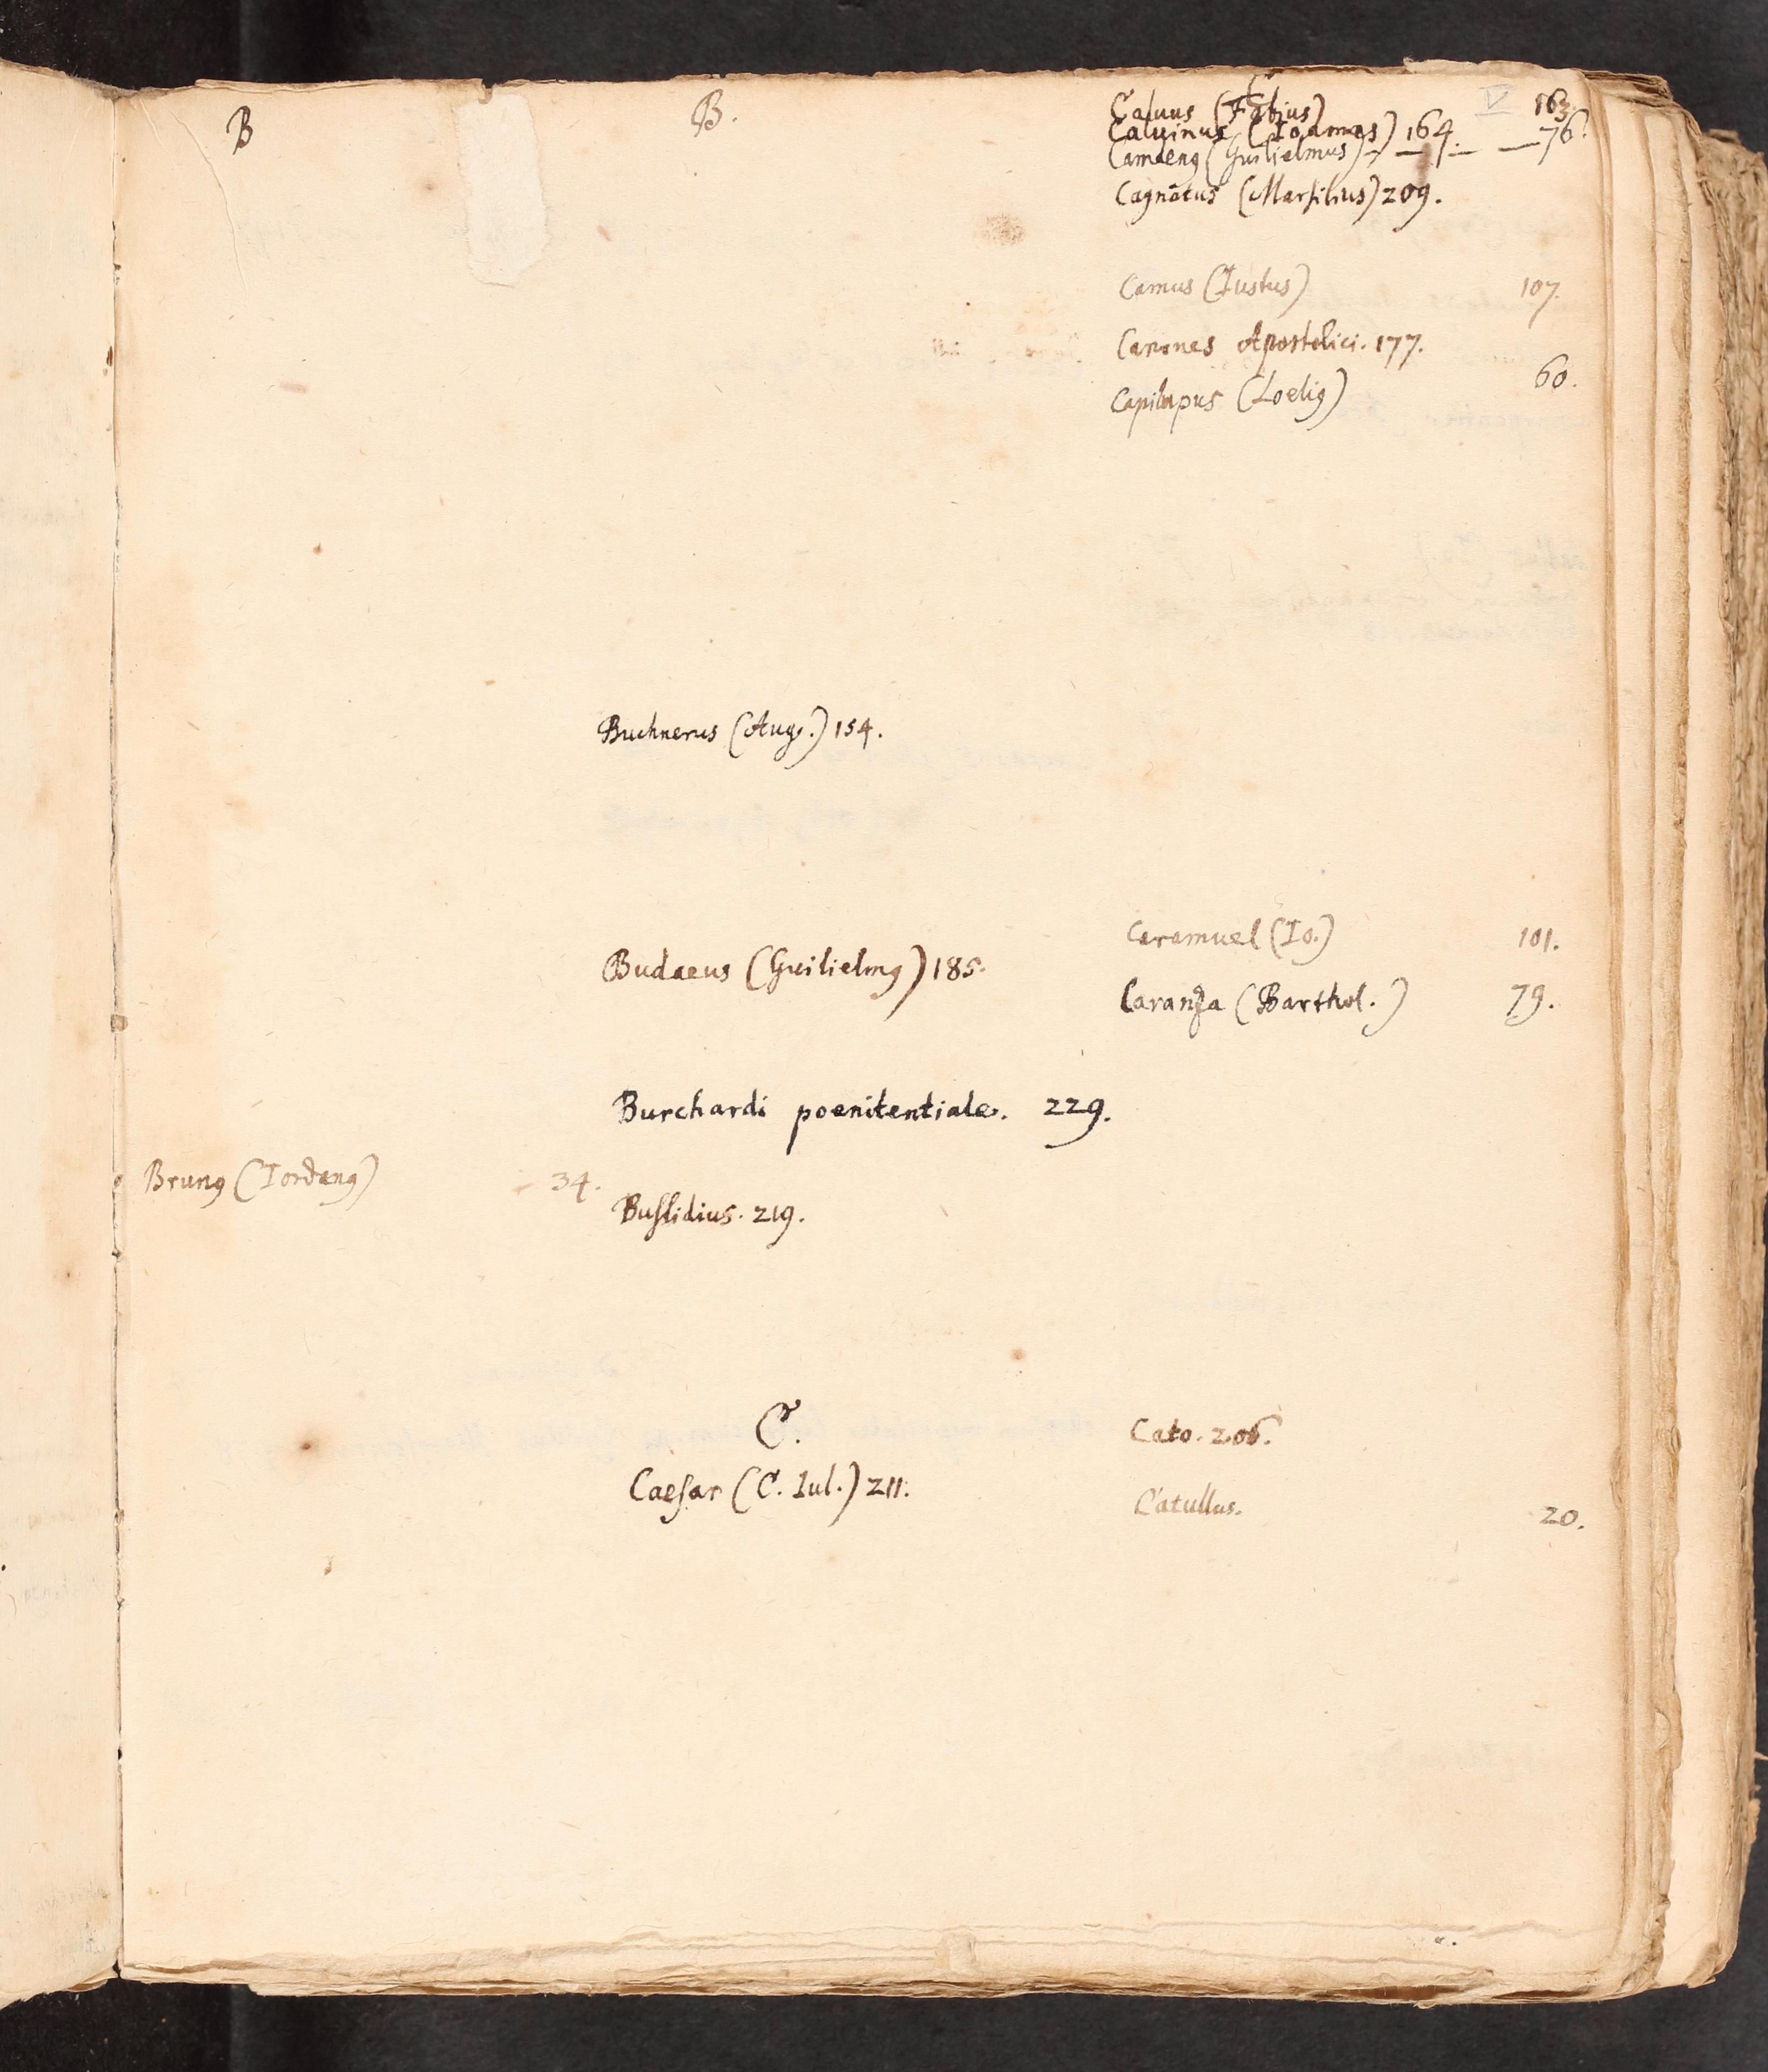 B
Brunꝰ (Iordanꝰ) 34.
B.
Buchnerus (Aug.) 154.
Budaeus (Guilielmꝰ) 185.
Burchardi poenitentiale. 229.
Buslidius. 219.
C.
Caesar (C. Iul.) 211.
C
V
Caluus (Fabius) 163.
Caluinus (Ioannes) 164.
Camdenꝰ (Guilielmus) — — — — 76.
Cagnatus (Marsilius) 209.
Camus (Iustus) 107.
Canones Apostolici. 177.
Capilupus (Loeliꝰ) 60.
Caramuel (Io.) 101.
Caranza (Barthol.) 79.
Cato. 206.
Catullus. 20.